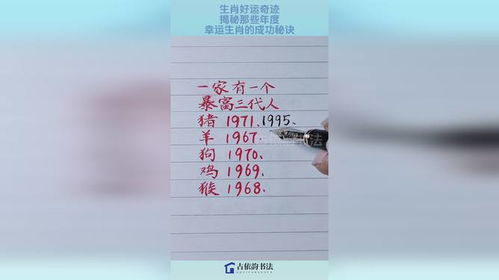 生肖好运奇迹
揭秘那些年度
幸运生肖的成功秘诀
一家有一个
暴富三代人
猪 1971、1995、
羊 1967、
狗 1970、
鸡 1969、
猴 1968、
古依韵书法